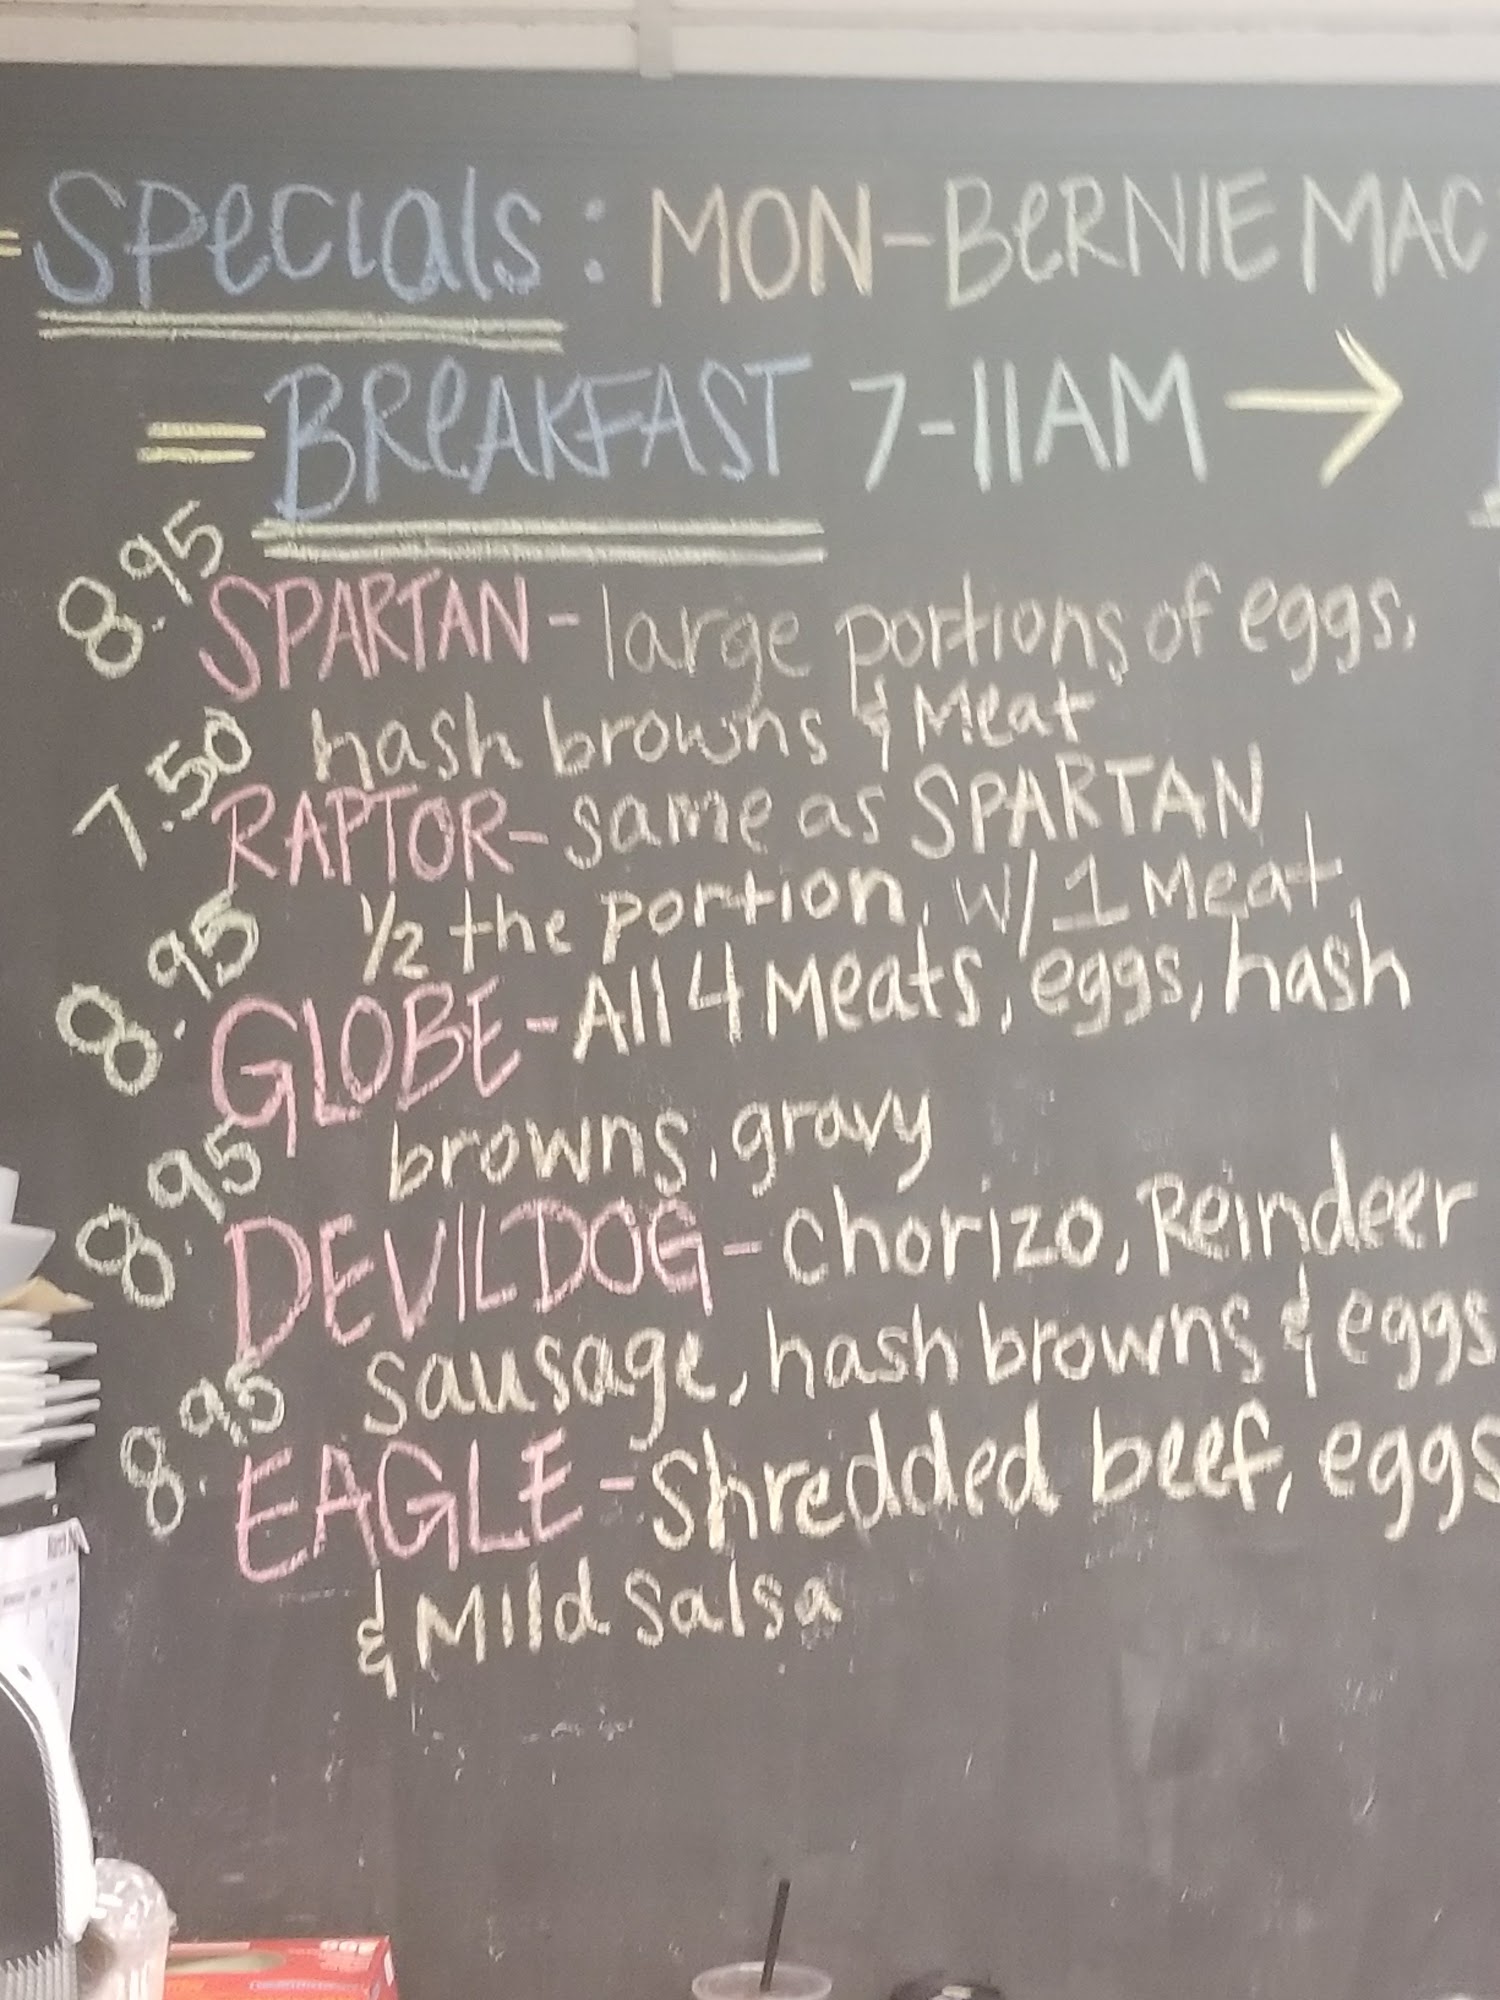 = Specials: MON-BERNIE MAC
= BREAKFAST 7-11AM →
8.95 SPARTAN - large portions of eggs,
hash browns & Meat
7.50 RAPTOR - same as SPARTAN
1/2 the portion, w/ 1 Meat,
8.95 GLOBE - All 4 Meats, eggs, hash
browns, gravy
8.95 DEVILDOG - Chorizo, Reindeer
sausage, hash browns & eggs
8.95 EAGLE - Shredded beef, eggs
& Mild Salsa